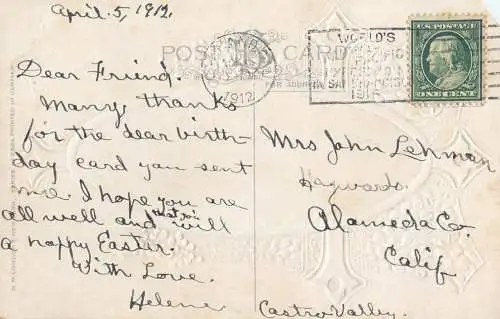 April. 5, 1912.
POST CARD
1912
WORLD'S
PACIFIC
1915
U.S. POSTAGE
ONE CENT
Dear Friend.
Many thanks
for the dear birth-
day card you sent
me. I hope you are
all well and that you will
a happy Easter.
With Love.
Helene
Mrs John Lehman
Haywards.
Alameda Co.
Calif
Castro Valley.